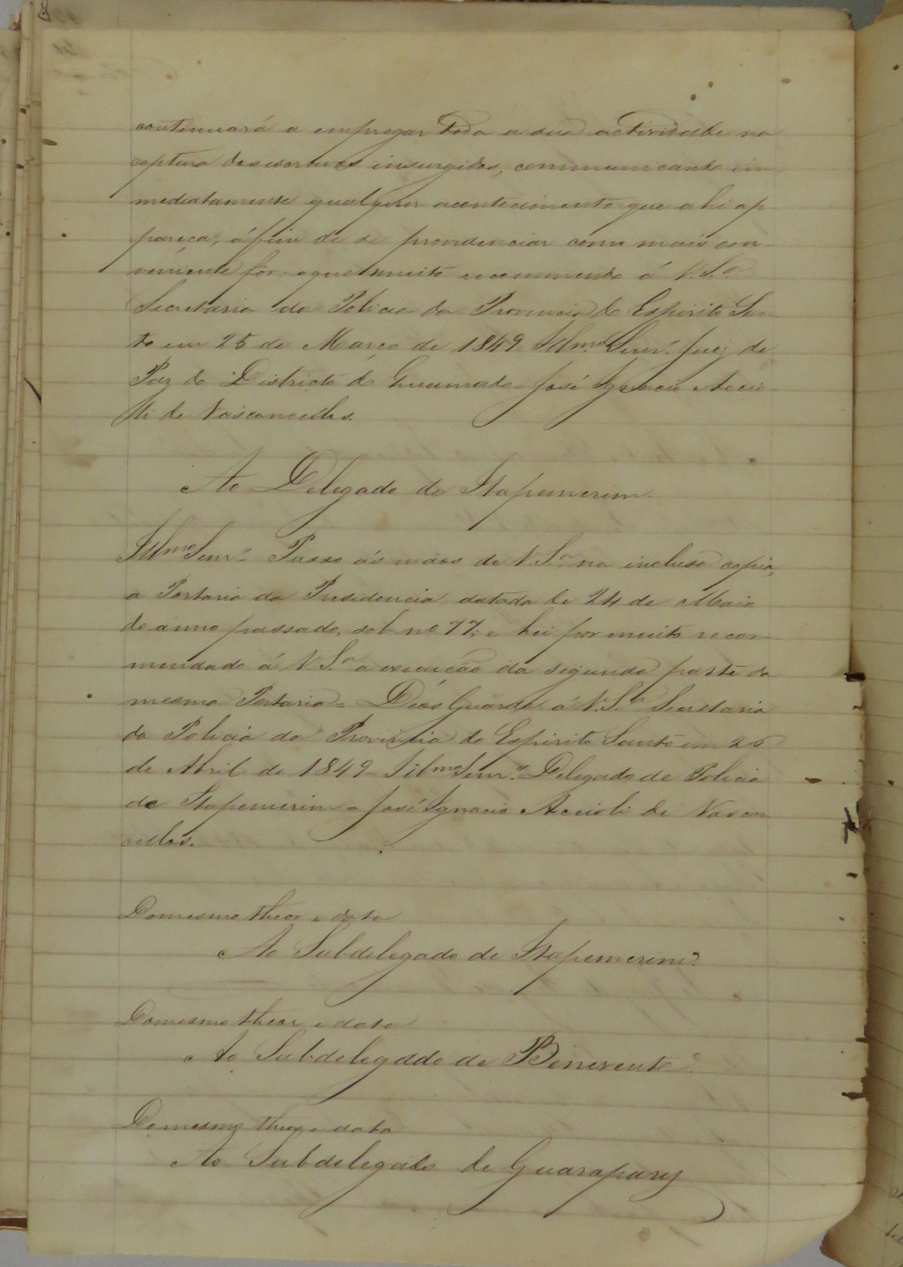 continuará a empregar toda a sua actividade na
captura dos escravos insurgidos, communicando im-
mediatamente qualquer acontecimento que ahi ap
pareça, áfim de se providenciar como mais con-
veniente for: o que muito recommendo á V. S.ª
Secretaria da Policia da Provincia do Espirito San
to em 25 de Março de 1849 Illmº Senrº Juiz de
Paz do Districto do José Ignacio Accio-
li de Vasconcellos.
Ao Delegado de Itapemerim
Illmº Senrº Passo ás mãos de V. Sª na inclusa copia,
a Portaria da Presidencia datada de 24 de Maio
do anno passado, sob nº 77; e hei por muito recom
mendado á V. Sª a execução da segunda parte da
mesma Portaria = Deos Guarde á V. Sª Secretaria
da Policia da Provincia do Espirito Santo em 25
de Abril de 1849 Illmº Senrº Delegado de Policia
de Itapemerim = José Ignacio Accioli de Vascon
cellos.
Do mesmo theor e data
Ao Subdelegado de Itapemerim
Do mesmo theor e data
Ao Subdelegado de Benevente
Do mesmo theor e data
Ao Subdelegado de Guarapary